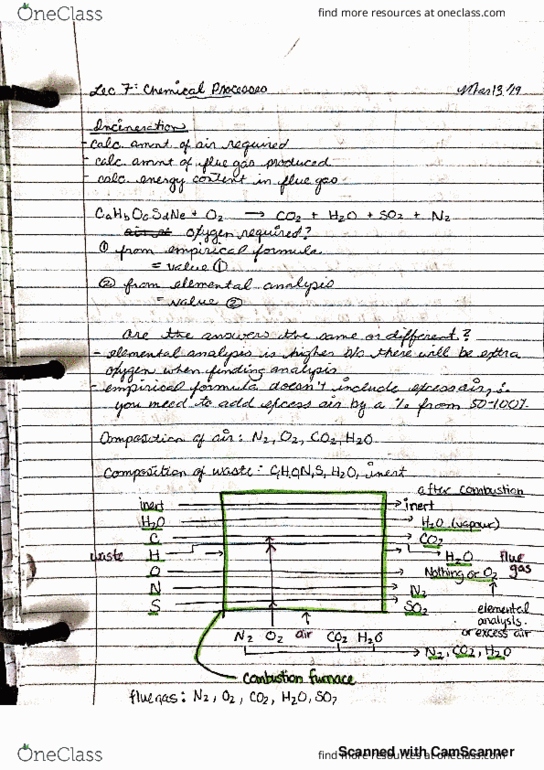 OneClass
find more resources at oneclass.com
Lec 7: Chemical Processes Mar 13/19
Incineration
- calc. amnt. of air required
- calc. amnt of flue gas produced
- calc. energy content in flue gas
CaHbOcSdNe + O2 → CO2 + H2O + SO2 + N2
oxygen required?
① from empirical formula
= value ①
② from elemental analysis
= value ②
Are the answers the same or different?
- elemental analysis is higher b/c there will be extra
oxygen when finding analysis
- empirical formula doesn't include excess air, ∴
you need to add excess air by a % from 50-100%.
Composition of air: N2, O2, CO2, H2O
Composition of waste: C,H,O,N,S, H2O, inert
after combustion
inert inert
H2O H2O (vapour)
C CO2
waste H H2O flue gas
O Nothing or O2
N N2
S SO2
elemental
analysis
or excess air
N2 O2 air CO2 H2O
N2, CO2, H2O
combustion furnace
flue gas: N2, O2, CO2, H2O, SO2
OneClass
find more resources at oneclass.com
Scanned with CamScanner